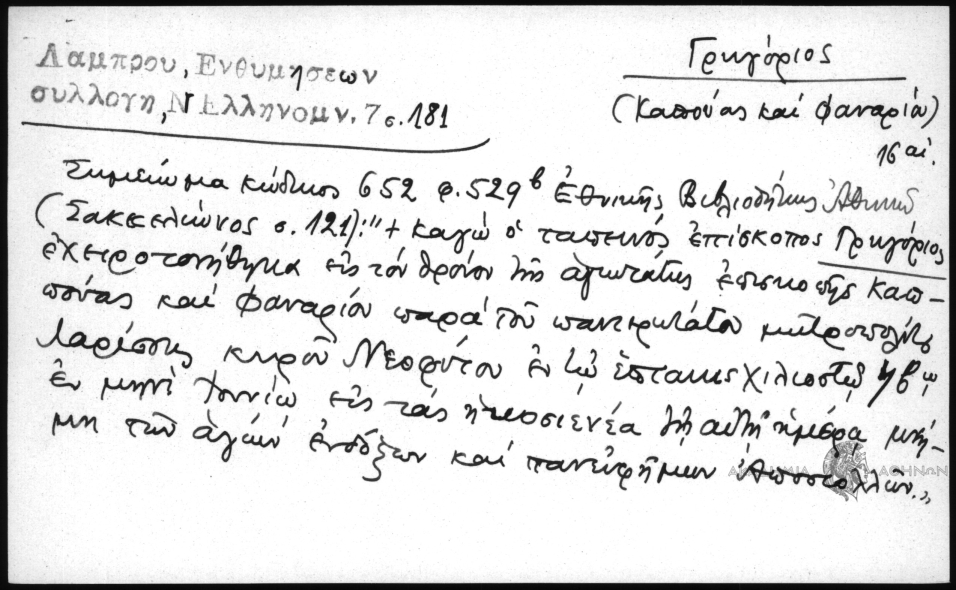 Λαμπρου, Ενθυμησεων
συλλογη, Ν Ελληνομν. 7 σ. 181
Γρηγόριος
(Καπούας καί Φαναρίου)
16 αἰ.
Σημείωμα κώδικος 652 φ. 529β Ἐθνικῆς Βιβλιοθήκης Ἀθηνῶν
(Σακκελίωνος σ. 121): "+ Καγώ ὁ ταπεινός ἐπίσκοπος Γρηγόριος
ἐχειροτονήθηκα εἰς τόν θρόνον τῆς ἁγιωτάτης ἐπισκοπῆς Καπ-
πούας καί Φαναρίου παρά τοῦ πανιερωτάτου μητροπολίτου
Λαρίσσης κυροῦ Νεοφύτου ἐν τῷ ἑπτακισχιλιοστῷ
ἐν μηνί Ἰουνίῳ εἰς τάς ἠκοσιενέα τῇ αὐτῇ ἡμέρᾳ μνή-
μη τῶν ἁγίων ἐνδόξων καί πανευφήμων Ἀποστόλλων.,,
ΑΚΑΔΗΜΙΑ ΑΘΗΝΩΝ